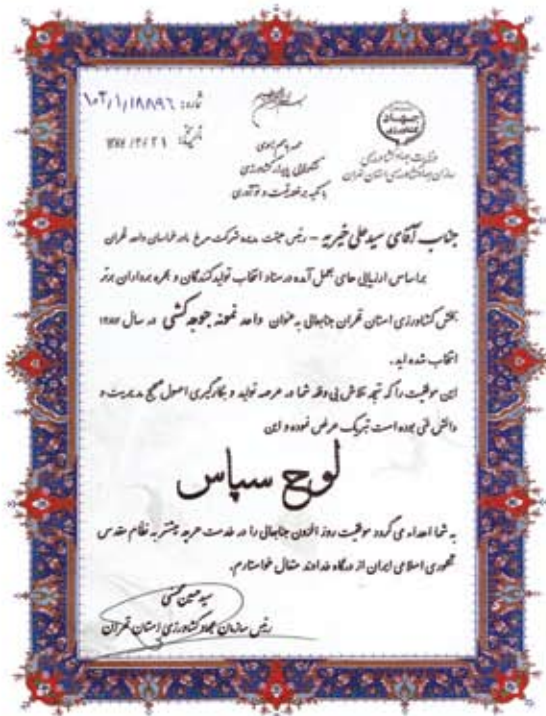 شماره: ۱۰۲/۱/۱۸۸۹۶
تاریخ:
جهاد
کشاورزی
وزارت جهاد کشاورزی
سازمان جهاد کشاورزی استان تهران
شکوفایی پایدار کشاورزی
جناب آقای سید علی خیریه – رئیس هیئت مدیره شرکت مرغ مادر خراسان واحد تهران
براساس ارزیابی های بعمل آمده در ستاد انتخاب تولیدکنندگان و بهره برداران برتر
بخش کشاورزی استان تهران جنابعالی به عنوان واحد نمونه جوجه کشی در سال ۱۳۸۷
انتخاب شده اید.
این موفقیت را که نتیجه تلاش بی وقفه شما در عرصه تولید و بکارگیری اصول صحیح مدیریت و
دانش فنی بوده است تبریک عرض نموده و این
لوح سپاس
به شما اهداء می گردد موفقیت روز افزون جنابعالی را در خدمت هرچه بیشتر به نظام مقدس
جمهوری اسلامی ایران از درگاه خداوند متعال خواستارم.
رئیس سازمان جهاد کشاورزی استان تهران